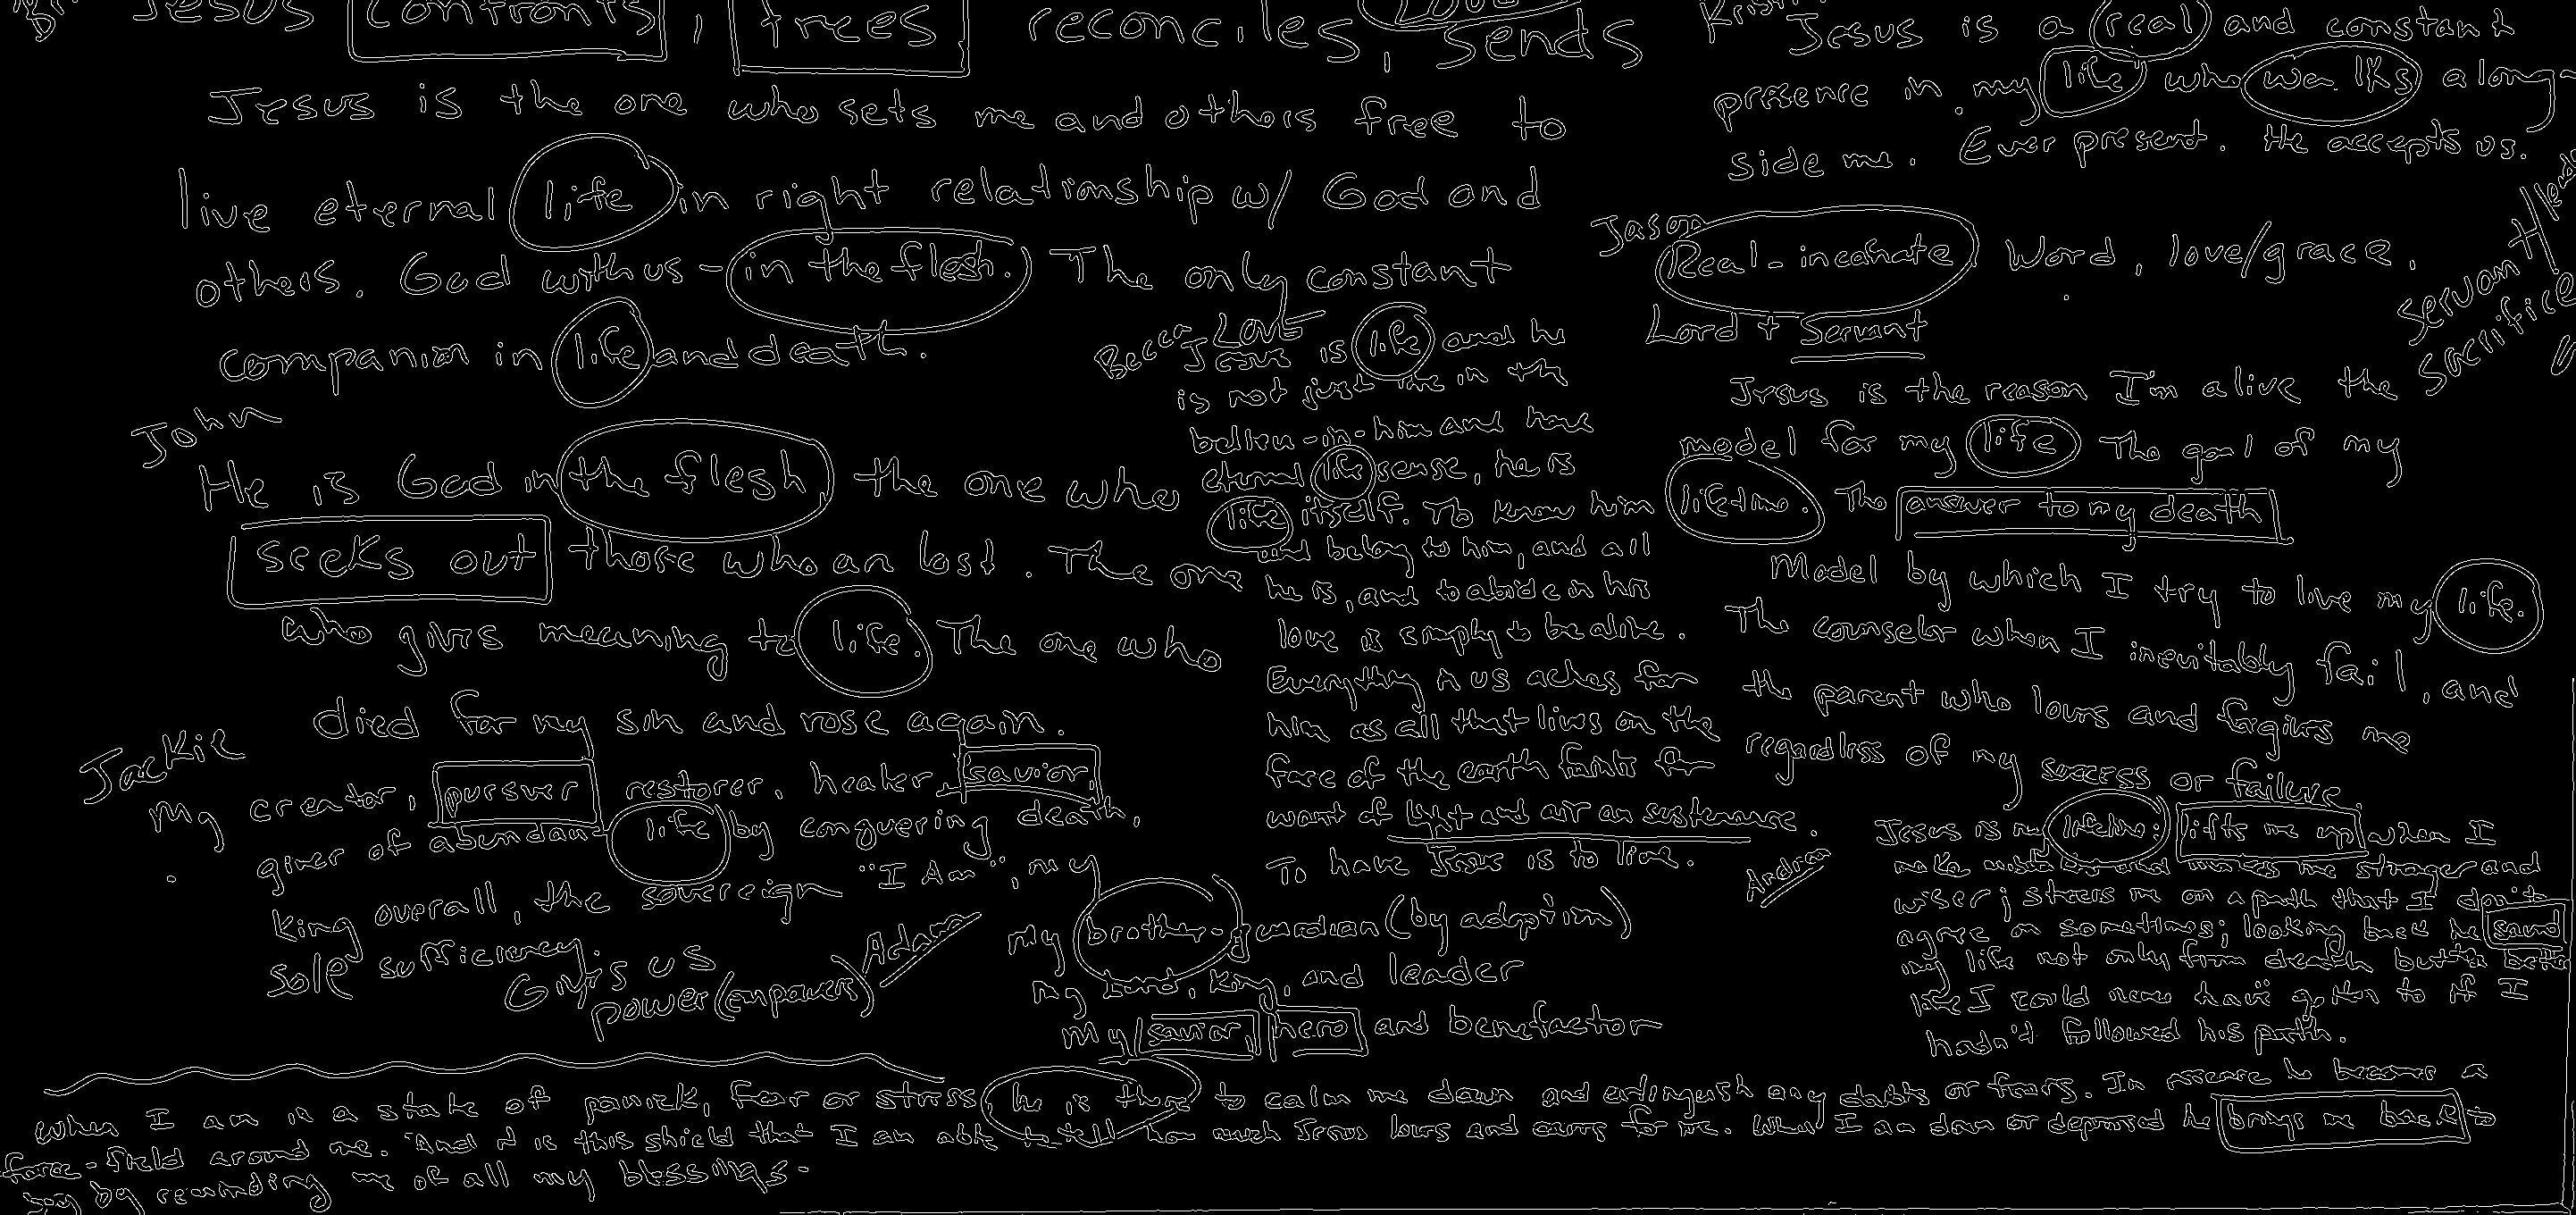 Jesus confronts, frees reconciles, sends
Jesus is the one who sets me and others free to
live eternal life in right relationship w/ God and
others. God with us - in the flesh. The only constant
companion in life and death.
John
He is God in the flesh the one who
seeks out those who are lost. The one
who gives meaning to life. The one who
died for my sin and rose again.
Jackie
My creator, pursuer restorer, healer, savior,
giver of abundant life by conquering death,
king overall, the sovereign "I Am", my
sole sufficiency.
Gives us
power (empowers)
Adam
my brother-guardian (by adoption)
my Lord, King, and leader
my savior, hero and benefactor
Becca
LOVE
Jesus is life and he
is not just life in the
believe-in-him and have
eternal life sense, he is
life itself. To know him
and belong to him, and all
he is, and to abide in his
love is simply to be alive.
Everything in us aches for
him as all that lives on the
face of the earth faints for
want of light and air an sustenance.
To have Jesus is to live.
Jesus is a real and constant
presence in my life who walks along-
side me. Ever present. He accepts us.
Jason
Real-incarnate Word, love/grace,
Lord + Servant
Servant
sacrifice
Jesus is the reason I'm alive the
model for my life The goal of my
lifetime. The answer to my death
Model by which I try to live my life.
The counselor when I inevitably fail, and
the parent who loves and forgives me
regardless of my success or failure
Andrea
Jesus is my lifeline: lifts me up when I
make mistakes and makes me stronger and
wiser; steers me on a path that I don't
agree on sometimes; looking back he saved
my life not only from death but to a better
I could never have gotten to if I
hadn't followed his path.
When I am in a state of panick, fear or stress, he is there to calm me down and extinguish any doubts or fears. In essence he becomes a
force-field around me. And it is this shield that I am able to tell how much Jesus loves and cares for me. When I am down or depressed he brings me back to
joy by reminding me of all my blessings.